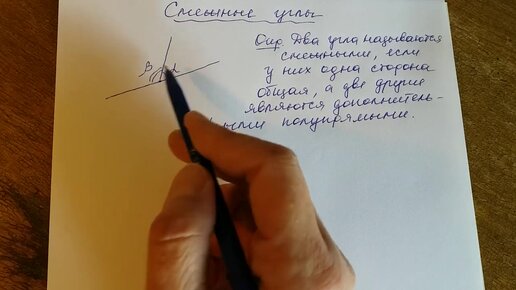 Смежные углы
Опр. Два угла называются
смежными, если
у них одна сторона
общая, а две другие
являются дополнитель-
ными полупрямыми.
β α